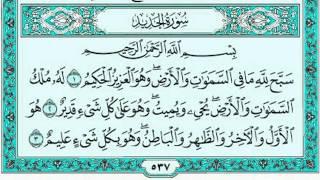 سُورَةُ الْحَدِيدِ
بِسْمِ اللَّهِ الرَّحْمَٰنِ الرَّحِيمِ
سَبَّحَ لِلَّهِ مَا فِي السَّمَٰوَٰتِ وَالْأَرْضِ ۖ وَهُوَ الْعَزِيزُ الْحَكِيمُ ١ لَهُ مُلْكُ
السَّمَٰوَٰتِ وَالْأَرْضِ ۖ يُحْيِي وَيُمِيتُ ۖ وَهُوَ عَلَىٰ كُلِّ شَيْءٍ قَدِيرٌ ٢ هُوَ
الْأَوَّلُ وَالْآخِرُ وَالظَّٰهِرُ وَالْبَاطِنُ ۖ وَهُوَ بِكُلِّ شَيْءٍ عَلِيمٌ ٣
٥٣٧